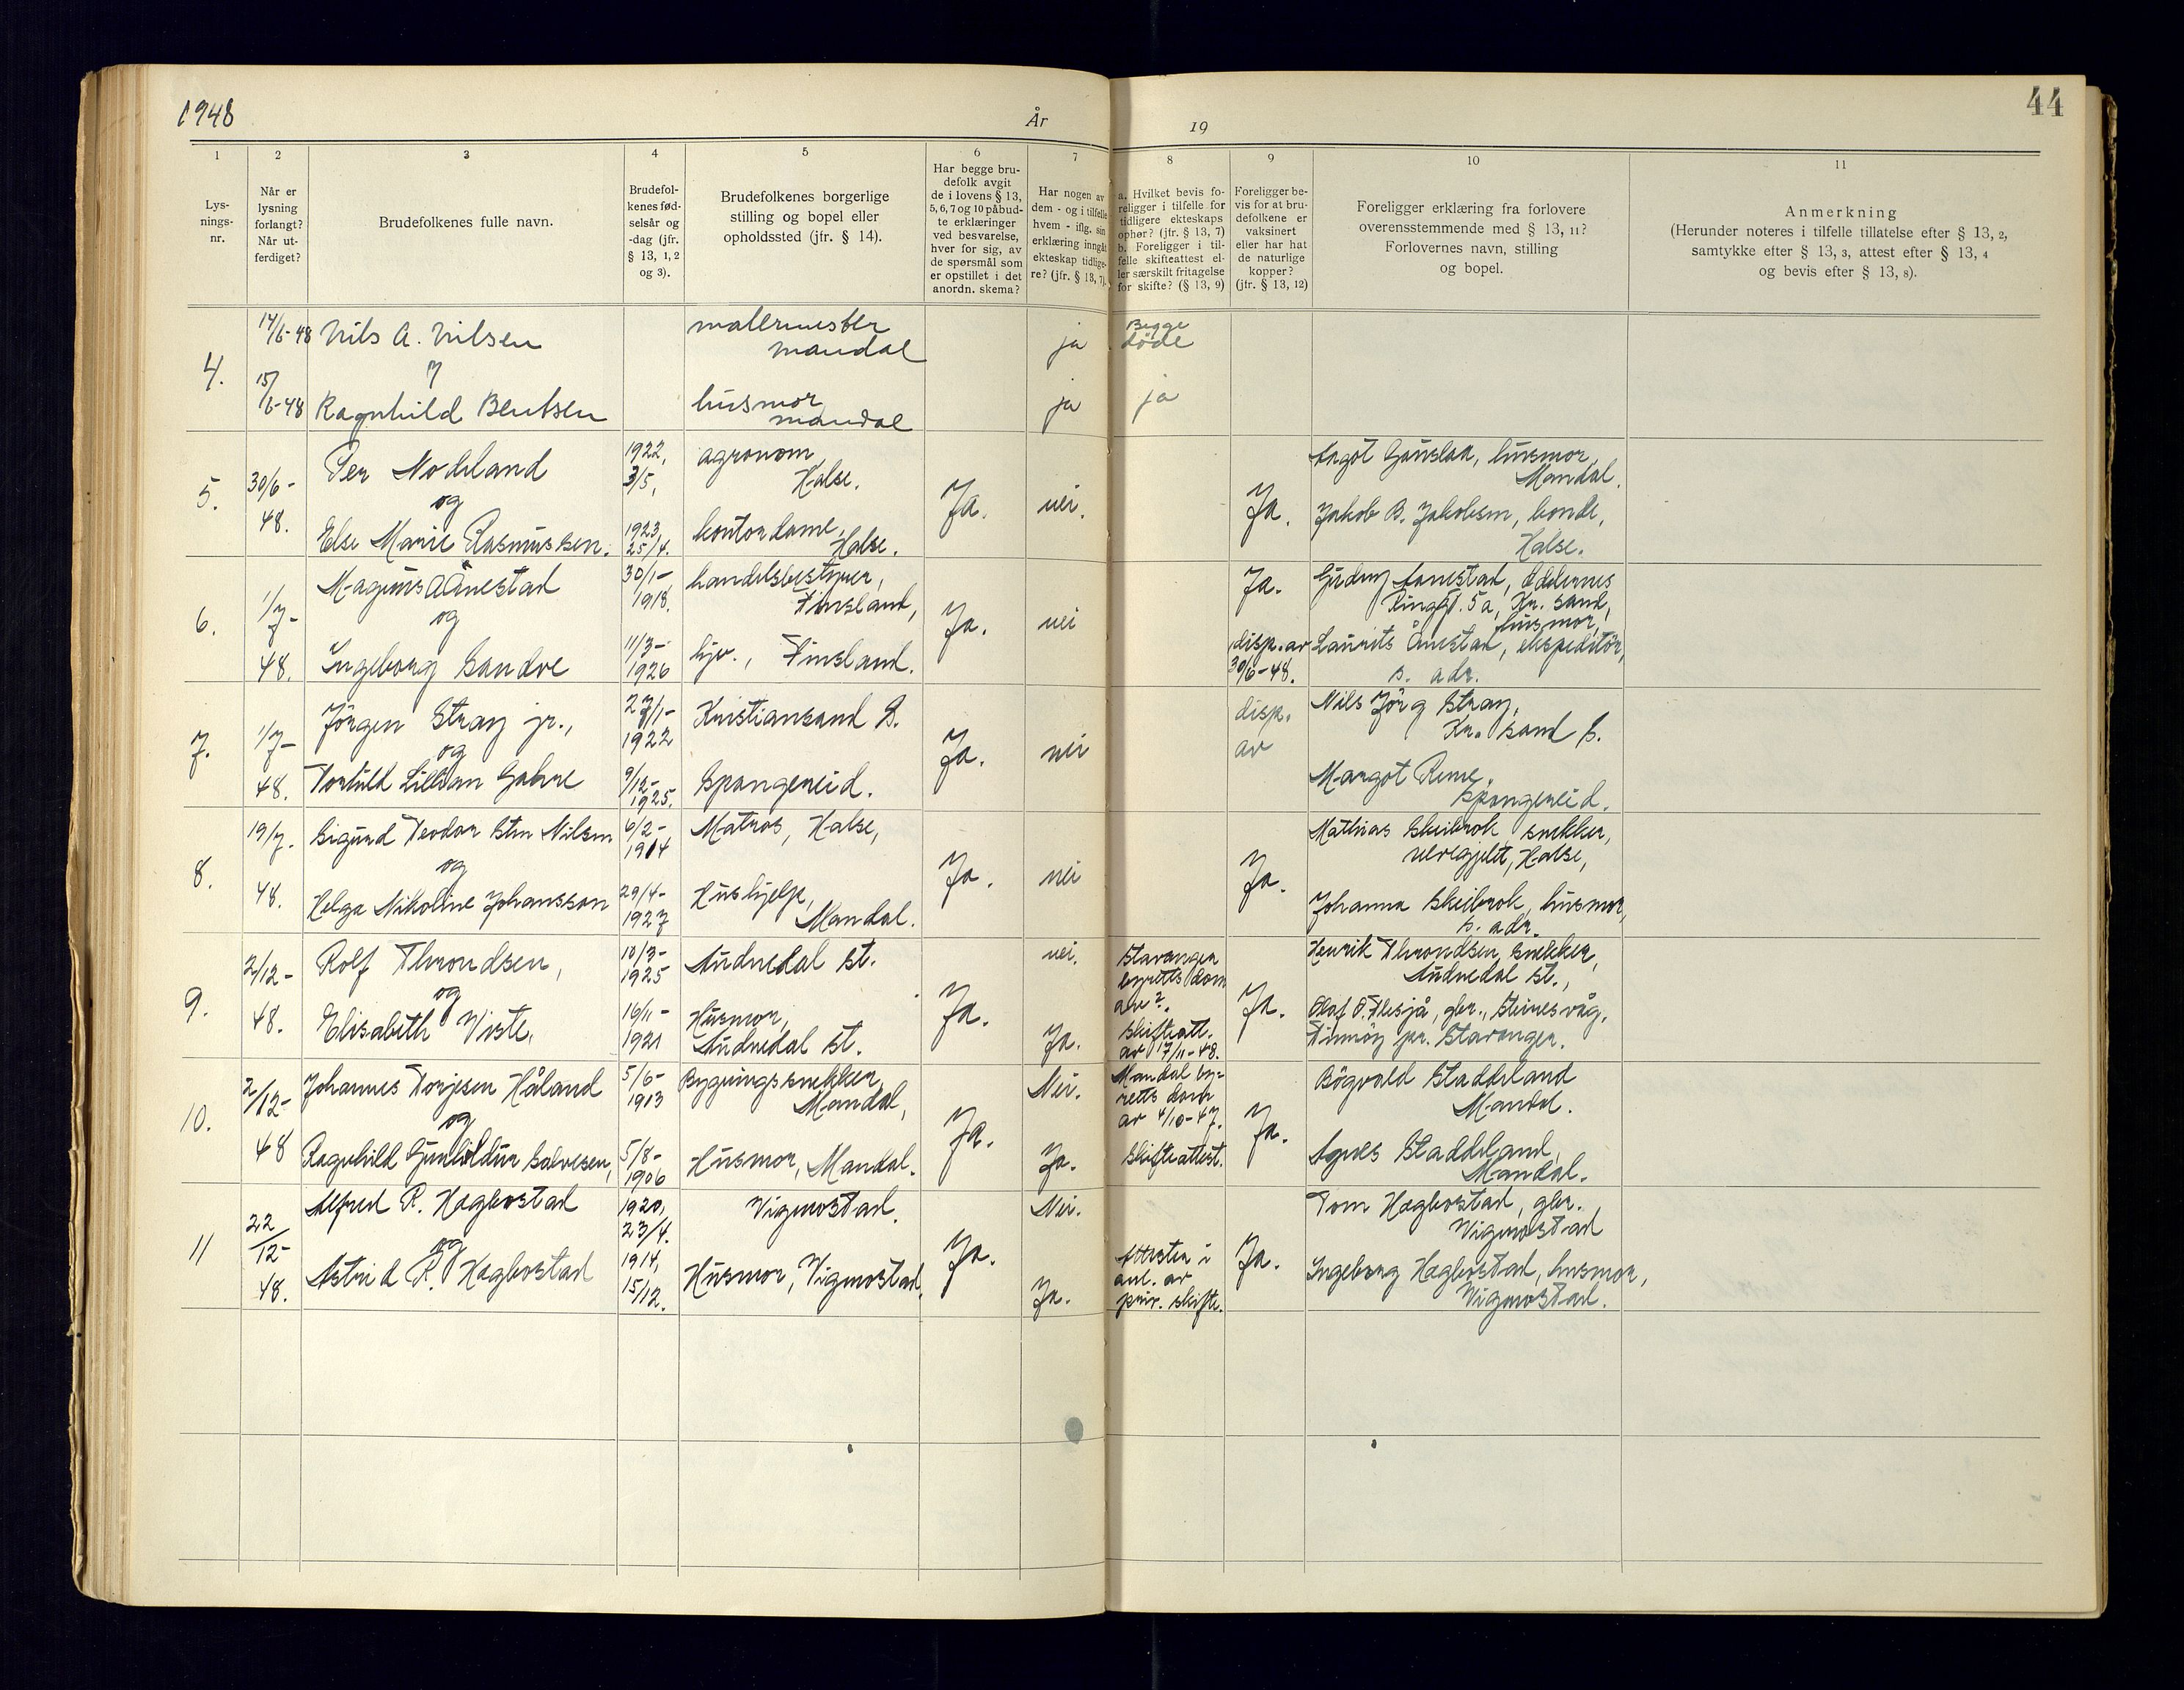 1948
År
19
44
1
2
3
4
5
6
7
8
9
10
11
Lys-
nings-
nr.
Når er
lysning
forlangt?
Når ut-
ferdiget?
Brudefolkenes fulle navn.
Brudefol-
kenes fød-
selsår og
-dag (jfr.
§ 13, 1, 2
og 3).
Brudefolkenes borgerlige
stilling og bopel eller
opholdssted (jfr. § 14).
Har begge bru-
defolk avgit
de i lovens § 13,
5, 6, 7 og 10 påbud-
te erklæringer
ved besvarelse,
hver for sig, av
de spørsmål som
er opstillet i det
anordn. skema?
Har nogen av
dem - og i tilfelle
hvem - iflg. sin
erklæring inngått
ekteskap tidlige-
re? (jfr. § 13, 7).
a. Hvilket bevis fo-
religger i tilfelle for
tidligere ekteskaps
ophør? (jfr. § 13, 7)
b. Foreligger i til-
felle skifteattest el-
ler særskilt fritagelse
for skifte? (§ 13, 9)
Foreligger be-
vis for at bru-
defolkene er
vaksinert
eller har hat
de naturlige
kopper?
(jfr. § 13, 12)
Foreligger erklæring fra forlovere
overensstemmende med § 13, 11?
Forlovernes navn, stilling
og bopel.
Anmerkning
(Herunder noteres i tilfelle tillatelse efter § 13, 2,
samtykke efter § 13, 3, attest efter § 13, 4
og bevis efter § 13, 8).
4.
14/6-48
15/6-48
Nils A. Nilsen
Ragnhild Bentsen
malermester
mandal
husmor
mandal
ja
ja
Begge
döde
ja
5.
30/6-
48.
Per Nodeland
og
Else Marie Rasmussen.
1922,
3/5,
1923,
25/4.
agronom,
Halse.
kontordame,
Halse.
Ja.
nei.
Ja.
Angot Gauslaa, husmor,
Mandal.
Jakob B. Jakobsen, bonde,
Halse.
6.
1/7-
48.
Magnus Aanestad
og
Ingeborg Sandve
30/1-
1918.
11/3-
1926
handelsbestyrer,
Finsland,
hjv., Finsland.
Ja.
nei
Ja.
disp. av
30/6-48.
Gudny Aanestad, Oddernes
Ringgt. 5a, Kr. sand,
husmor,
Laurits Ånestad, ekspeditör,
s. adr.
7.
1/7-
48.
Jörgen Stray jr.,
og
Torhild Lillian Gahre
27/1-
1922
9/12-
1925.
Kristiansand S.
Spangereid.
Ja.
nei
disp.
av
Nils Jörg Stray,
Kr. sand S.
Margot Reme,
Spangereid.
8.
19/7.
48.
Sigurd Teodor Sten Nilsen
og
Helga Nikoline Johansson
6/2-
1914
29/4-
1927
Matros, Halse,
Hushjelp,
Mandal.
Ja.
nei
Ja.
Mathias Skeibrok, snekker,
Halse,
Johanna Skeibrok, husmor,
s. adr.
9.
2/12-
48.
Rolf Throndsen,
og
Elisabeth Viste,
10/3-
1925
16/11-
1921
Audnedal St.
Husmor,
Audnedal St.
Ja.
nei.
Ja.
Stavanger
byretts dom
av ?.
Skifteatt.
av 17/11-48.
Ja.
Henrik Throndsen, snekker,
Audnedal St.,
Olaf O. Flesjå, gbr., Steinesvåg,
Finnöy pr. Stavanger.
10.
2/12-
48
Johannes Torjesen Håland
og
Ragnhild Gunhildur Salvesen,
5/6-
1913
5/8-
1906
Bygningssnekker,
Mandal,
Husmor, Mandal.
Ja.
Nei.
Ja.
Mandal by-
retts dom
av 4/10-47.
Skifteattest.
Ja.
Bögvald Staddeland
Mandal.
Agnes Staddeland,
Mandal.
11
22/12-
48.
Alfred R. Hægbostad
og
Astrid R. Hægbostad
1920,
23/4.
1914,
15/12.
Vigmostad.
Husmor, Vigmostad,
Ja.
Nei.
Ja.
Attester i
anl. av
priv. skifte.
Ja.
Tom Hægbostad, gbr.
Vigmostad
Ingeborg Hægbostad, husmor,
Vigmostad.